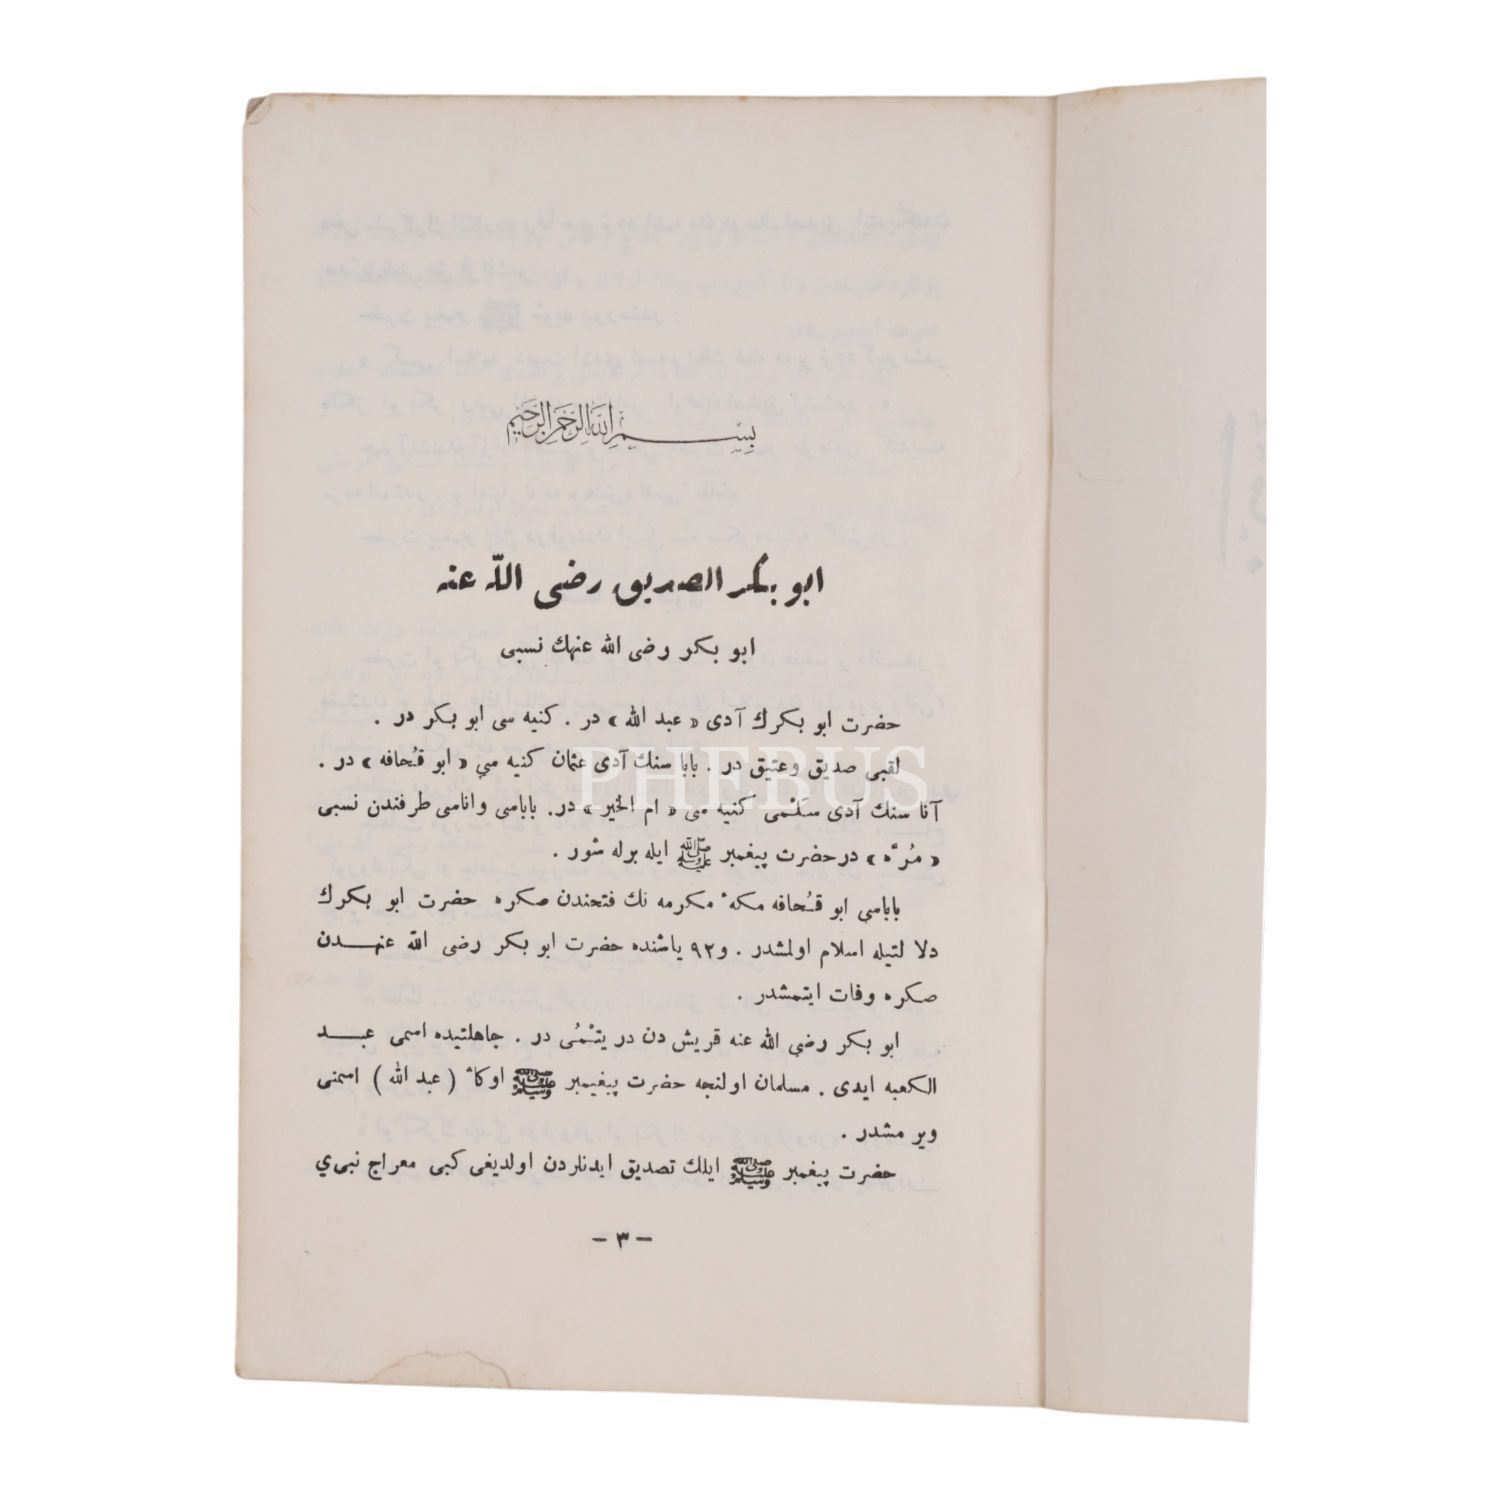 بسم الله الرحمن الرحيم
ابو بكر الصديق رضى اللّه عنه
ابو بكر رضى الله عنهك نسبى
حضرت ابو بكرك آدى « عبد الله » در . كنيه سى ابو بكر در .
لقبى صديق وعتيق در . بابا سنك آدى عثمان كنيه سي « ابو قُحافه » در .
آنا سنك آدى سَلْمى كنيه سى « ام الخير » در. باباسى واناسى طرفندن نسبى
« مُرَّه » درحضرت پيغمبر ﷺ ايله بوله شور .
باباسي ابو قُحافه مكهٔ مكرمه نك فتحندن صكره حضرت ابو بكرك
دلا لتيله اسلام اولمشدر . و٩٢ ياشنده حضرت ابو بكر رضى اللّه عنهـــدن
صكره وفات ايتمشدر .
ابو بكر رضي الله عنه قريش دن در يتْمُى در . جاهلتيده اسمى عبـــد
الكعبه ايدى . مسلمان اولنجه حضرت پيغيمبر ﷺ اوكاٴ ( عبد الله ) اسمنى
وير مشدر .
حضرت پيغمبر ﷺ ايلك تصديق ايدنلردن اولديغى كبى معراج نبىي
– ٣ –
PHEBUS